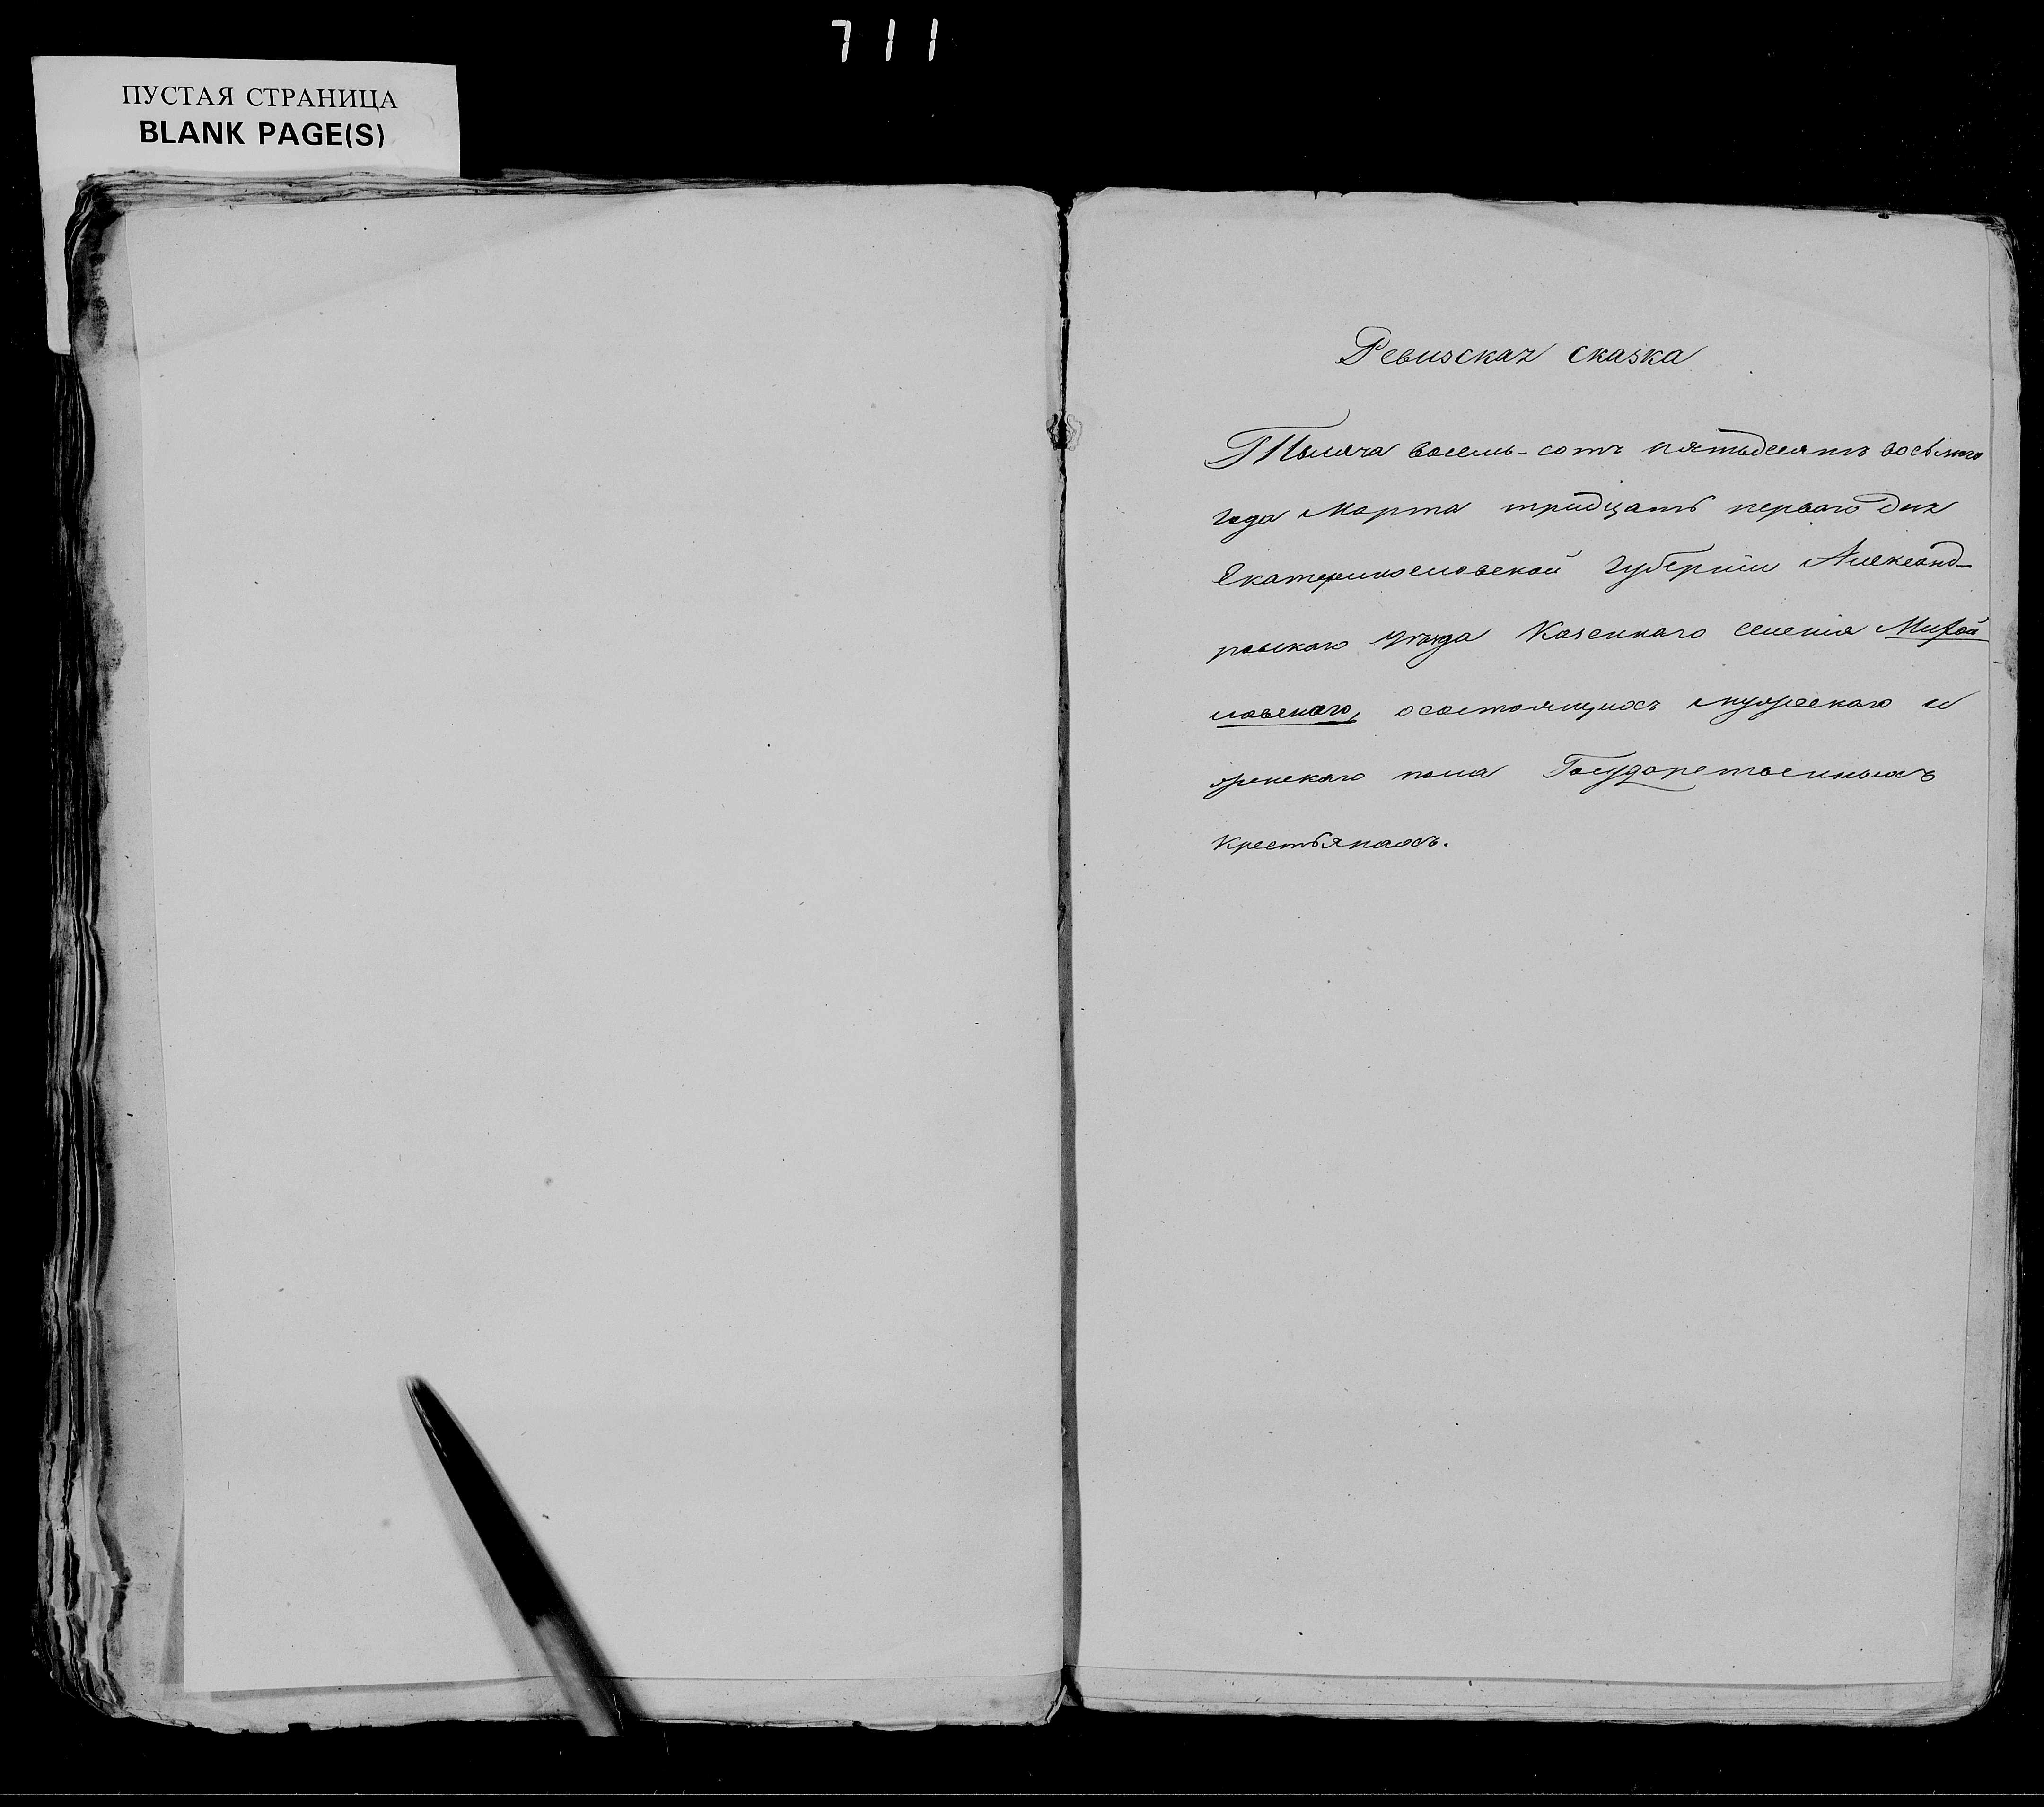 711
ПУСТАЯ СТРАНИЦА
BLANK PAGE(S)
Ревизская сказка
Тысяча восемь-сотъ пятьдесятъ восьмого
года Марта тридцать перваго дня
Екатеринославской губерніи Александ-
ровскаго уѣзда Казеннаго селенія Михай
ловскаго, о состоящихъ мужескаго и
женскаго пола Государственныхъ
крестьянахъ.